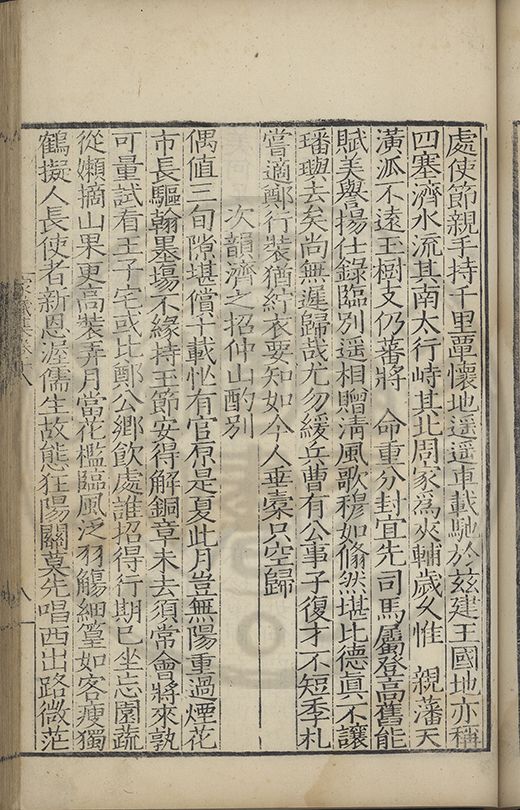 處使節親手持千里覃懷地遥遥車載馳於兹建王國地亦稱
四塞濟水流其南太行峙其北周家爲夾輔歲久惟 親藩天
潢派不遠玉樹支仍蕃將 命重分封宜先 司馬屬登高舊能
賦美譽揚仕錄臨別遥相贈清風歌穆如翛然堪比德真不讓
璠璵去矣尚無遲歸哉尤勿緩兵曹有公事子復才不短季札
嘗適鄭行裝猶紵衣要知如今人垂橐只空歸
次韻濟之招仲山酌別
偶值三旬隙堪償十載忙有官原是夏此月豈無陽重過煙花
市長驅翰墨場不緣持玉節安得解銅章未去須常會將來孰
可量試看王子宅或比鄭公鄉飲處誰招得行期已坐忘園蔬
從嬾摘山果更高裝弄月當花檻臨風泛羽觴細篁如客瘦獨
鶴擬人長使者新恩渥儒生故態狂陽關莫先唱西出路微茫